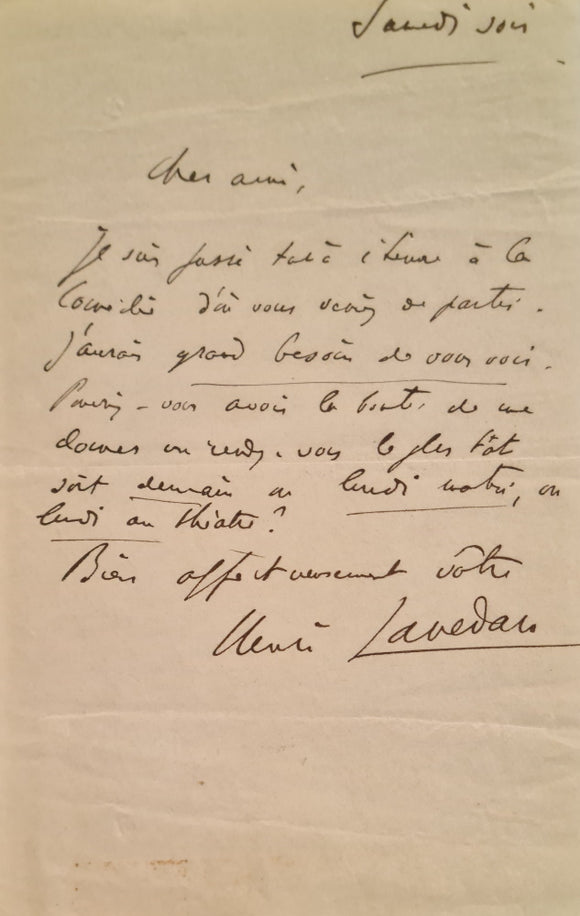 Samedi soir
Cher ami,
Je suis passé tout à l'heure à la
Comédie d'où vous veniez de partir.
J'aurais grand besoin de vous voir.
Pourriez-vous avoir la bonté de me
donner un rendez-vous le plus tôt
soit demain ou lundi matin, ou
lundi au théâtre?
Bien affectueusement vôtre
Henri Lavedan